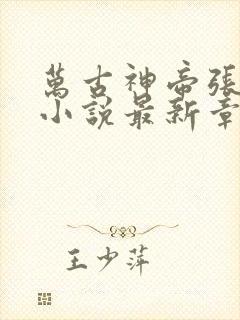 萬古神帝張
小說最新章
王少萍